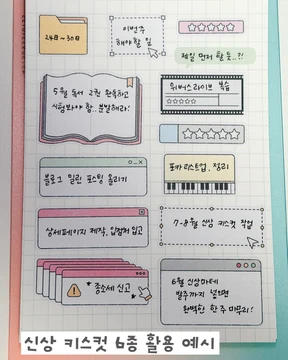 24일~30일
이번주
해야할 일
제일 먼저 할 듯..?!
5월 독서 2권 완독하고
시험봐야 함..분발해라!
위버스라이브 복습
블로그 밀린 포스팅 올리기
포카리스트업, 정리
상세페이지 제작, 입점처 입고
7-8월 신상 키스컷 작업
종소세 신고
6월 신상마테
발주까지 넣으면
완벽한 한 주 마무리!
신상 키스컷 6종 활용 예시